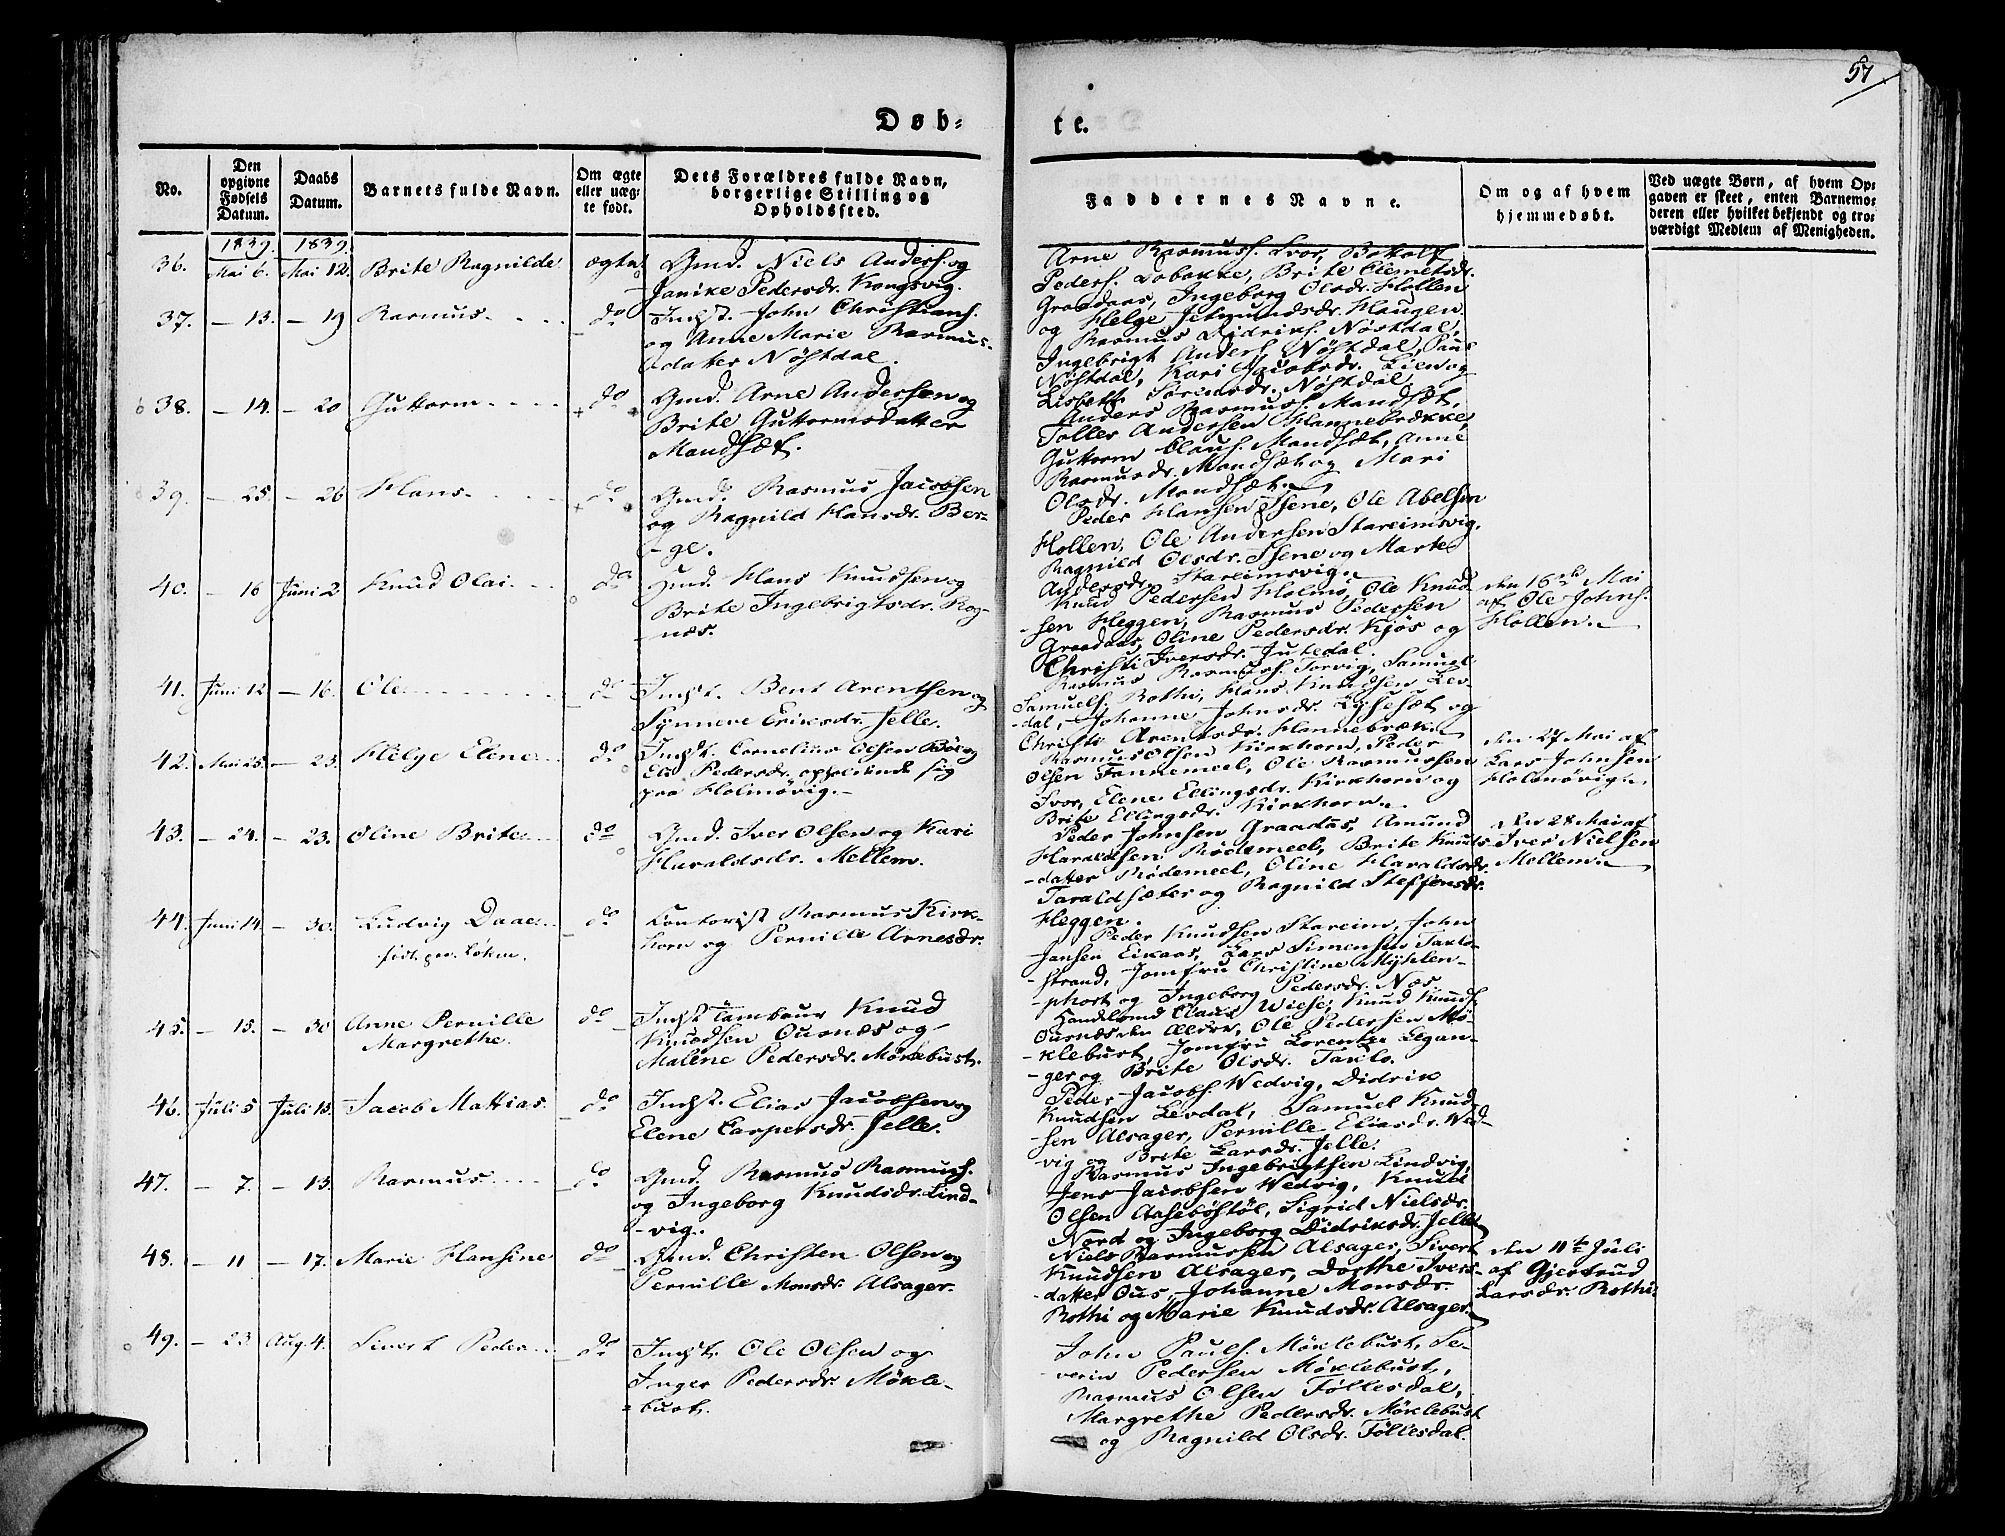 57
Døb-
te.
No.
Den opgivne Fødsels Datum.
Daabs Datum.
Barnets fulde Navn.
Om ægte eller uægte født.
Dets Forældres fulde Navn, borgerlige Stilling og Opholdssted.
Faddernes Navne.
Om og af hvem hjemmedøbt.
Ved uægte Børn, af hvem Opgaven er skeet, enten Barnemoderen eller hvilket bekjendt og troværdigt Medlem af Menigheden.
1839. 1839.
36. Mai 6. Mai 12. Brite Ragnilde ægte Gmd. Niels Anders. og
Janike Pedersdr. Kongsvig.
Arne Rasmuss. Svor, Botolf
Peders. Lobakke, Brite Clemetsdr.
Graadaas, Ingeborg Olsdr. Hollen
og Helge Jetmundsdr. Haugen.
37. — 13. — 19 Rasmus do Indst. John Christians.
og Anne Marie Rasmus-
datter Nøstdal.
Rasmus Didriks. Nøstdal,
Ingebrigt Anders. Nøstdal, Paul
Nøstdal, Kari Jacobsdr. Lien og
Lisbeth Sørensdr. Nøstdal
38. — 14. — 20 Guttorm do Gmd. Arne Andersen og
Brite Guttormsdatter
Mandsæt.
Anders Rasmuss. Mandsæt,
Tolles Andersen Hannebrække,
Guttorm Claus. Mandsæt, Anne
Rasmusdr. Mandsæt og Mari
Olsdr. Mandsæt.
39. — 25. — 26 Hans do Gmd. Rasmus Jacobsen
og Ragnild Hansdr. Ber-
-ge.
Peder Hansen Isene, Ole Abelsen
Hollen, Ole Andersen Stareimsvig,
Ragnild Olsdr. Isene og Marte
Andersdr. Stareimsvig.
40. — 16 Juni 2 Knud Olai do Gmd. Hans Knudsen og
Brite Ingebrigtsdr. Rog-
-næs.
Knud Pedersen Holme, Ole Knud-
-sen Heggen, Rasmus Pedersen
Graadaas, Oline Pedersdr. Kjøs og
Christi Iversdr. Jutedal.
den 16de Mai
af Ole Johns.
Hollen.
41. Juni 12 — 16. Ole do Indst. Bent Arentsen og
Synneve Eriksdr. Jelle.
Rasmus Rasmuss. Torvig, Samuel
Samuels. Rothi, Hans Knudsen Lev-
-dal, Johanne Johnsdr. Lysesæt og
Christi Arentsdr. Hannebræk
42. Mai 25. — 23. Helge Eline do Indst. Cornelius Olsen Böe og
Eli Pedersdr. opholdende sig
paa Holmøvig.
Rasmus Olsen Kirkhorn, Peder
Olsen Tannemeel, Ole Rasmussen
Svor, Elene Ellingsdr. Kirkhorn og
Brite Ellingsdr. Kirkhorn.
den 27 Mai af
Lars Johnsen
Holmøvig.
43. — 24. — 23. Oline Brite do Gmd. Iver Olsen og Kari
Haraldsdr. Mellem.
Peder Johnsen Graadas, Amund
Haraldsen Rødemeel, Brite Knuds-
-datter Rødemeel, Oline Haraldsdr.
Taraldsæter og Ragnild Steffensdr.
Heggen.
Den 28 Mai af
Iver Nielsen
Mellem.
44. Juni 14. — 30. Ludvig Daae do Contorist Rasmus Kirk-
horn og Pernille Arnesdr.
Peder Knudsen Stareim, John
Jansen Eikaas, Lars Simensen Taklo-
-strand, Jomfru Christine Myklen-
-phort og Ingeborg Pedersdr. Næs.
45. — 15. — 30 Anne Pernille
Margrethe. do Indst. Tambour Knud
Knudsen Ournæs og
Malene Pedersdr. Møklebust.
Handelsmd Claus Wiese, Knud Knuds.
Ournæs den Ældre, Ole Pedersen Mø-
-klebust, Jomfru Lorentze Legan-
-ger og Brite Olsdr. Taklo.
46. Juli 5 Juli 13. Jacob Mattias. do Indst. Elias Jacobsen og
Elene Caspersdr. Jelle.
Peder Jacobs. Wedvig, Didrik
Knudsen Levdal, Samuel Knud-
-sen Alsager, Pernille Eliasdr. Wed-
vig og Brite Larsdr. Jelle.
47. — 7. — 13. Rasmus do Gmd. Rasmus Rasmuss.
og Ingeborg Knudsdr. Lind-
-vig.
Rasmus Ingebrigtsen Lindvig,
Jens Jacobsen Wedvig, Knud
Olsen Aasebøstøl, Sigrid Nielsdr.
Nord og Ingeborg Didriksdr. Jelle
48. — 11 — 17. Marie Hansine do Gmd. Christen Olsen og
Pernille Monsdr. Alsager.
Niels Rasmussen Alsager, Sivert
Knudsen Alsager, Dorthe Ivers-
-datter Ous, Johanne Monsdr.
Rothi og Marie Knudsdr. Alsager.
den 11te Juli
af Gjertrud
Larsdr. Rothi.
49. — 23 Aug. 4. Sivert Peder do Indst. Ole Olsen og
Inger Pedersdr. Møkle-
-bust.
John Pauls. Møklebust, Se-
verin Pedersen Møklebust,
Rasmus Olsen Føllesdal,
Margrethe Pedersdr. Møklebust
og Ragnild Olsdr. Føllesdal.